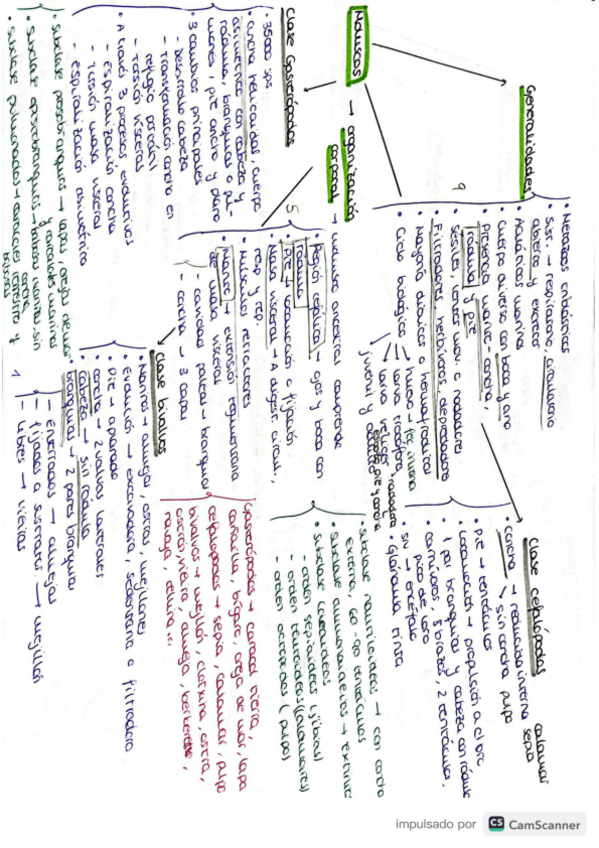 Moluscos
Generalidades
9
Metazoos
Sist. → respiratorio, circulatorio
abierto y excretor
Acuáticos marinos
Cuerpo diverso con boca y ano
Presencia manto, concha,
rádula y pie
Sesiles, lentos mov. o nadadores
Filtradores, herbívoros, depredadores
Mayoría dioicos o hermafroditas
Ciclo biológico
huevo → fec. interna
larva trocófora
larva veliger → nadadora
pie y concha
juvenil y adulto
→ organización
corporal
→ molusco ancestral comprende
5
Región cefálica → ojos y boca con
rádula
Pie → locomoción o fijación
Masa visceral → A. digest. circul,
resp y rep.
Músculos retractores
Manto → extensión tegumentaria
de masa visceral
- cavidad paleal → branquias
- concha → 3 capas
Clase Gasterópodos
35000 sps
concha helicoidal, cuerpo
asimétrico con cabeza y
rádula, branquias o pul-
mones, pie ancho y plano
3 cambios principales
- Desarrollo cabeza
- Transformación concha en
refugio portátil
- torsión vísceras
A través 3 procesos evolutivos
- espiralización concha
- Torsión masa visceral
- espiralización asimétrica
subclase prosobranquios → lapa, orejas de mar
y caracoles marinos
subclase opistobranquios → babosa marina sin
concha
subclase pulmonados → caracoles terrestre y
babosas
Clase bivalvos
Manto → almejas, ostras, mejillones
Evolución → excavadora, sedentaria o filtradora
Pie → aplanado
concha → 2 valvas laterales
cabeza → sin rádula
branquias → 2 pares branquias
- Enterrados → almejas
- fijados a sustratos → mejillón
- libres → vieiras
Clase cefalópodos
concha → reducida interna
calamar
sepia
sin concha pulpo
Pie → tentáculos
Locomoción → propulsión a chorro
1 par branquias y cabeza con rádula
carnívoros, 8 brazos, 2 tentáculos,
pico de loro
SN → encéfalo
Glándula tinta
subclase nautiloideos → con concha
externa, 60-90 tentáculos
subclase ammonoideos → extintos
subclase coleoideos
- orden sepioideos (jibias)
- orden teutoideos (calamares)
- orden octópodos (pulpo)
Gasterópodos → caracol tierra,
cañaílla, bígaro, oreja de mar, lapa
cefalópodos → sepia, calamar, pulpo
bivalvos → mejillón, ostra,
vieira, almeja, berberecho,
navaja,
impulsado por
CS CamScanner